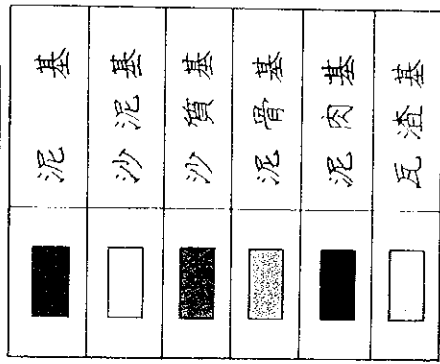 泥基
沙泥基
沙質基
泥骨基
泥肉基
瓦渣基